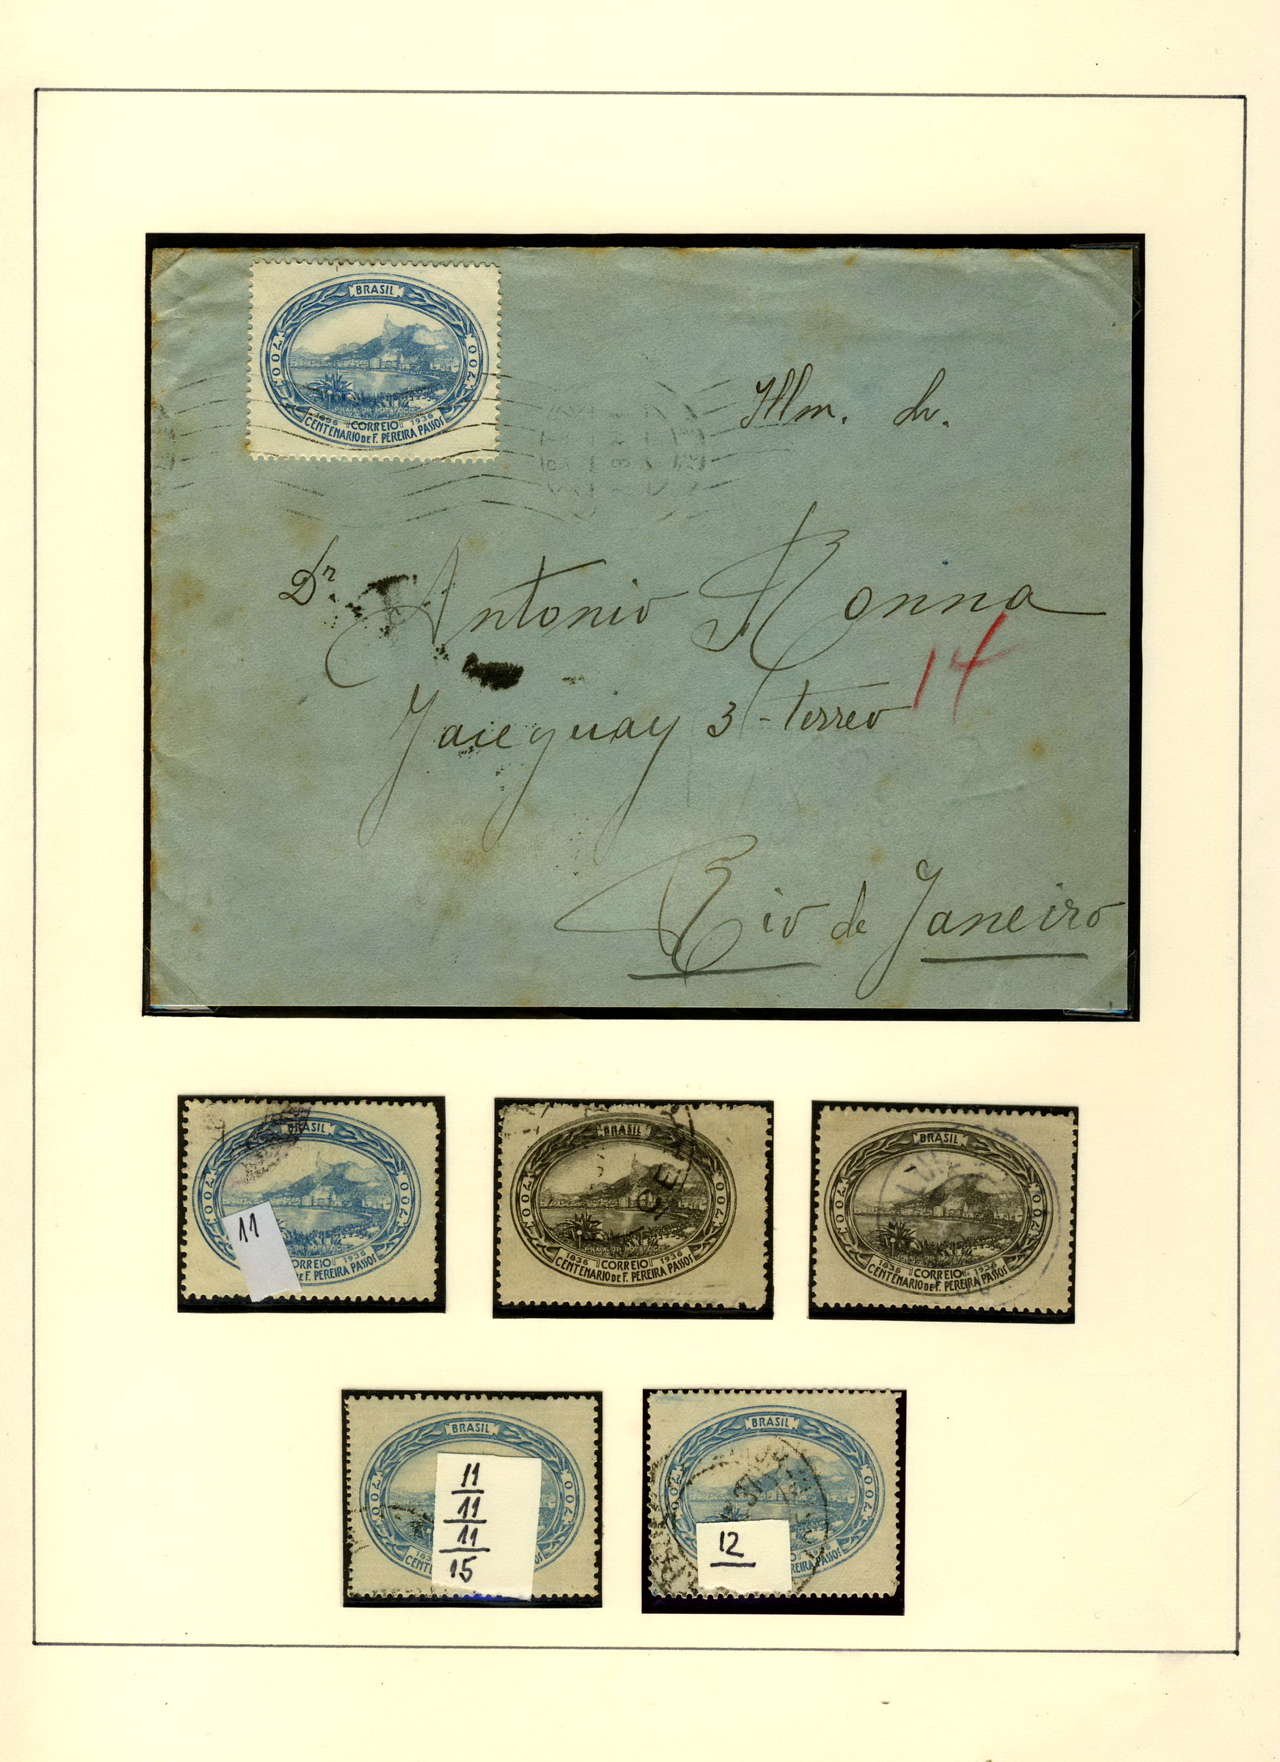 BRASIL
700 700
PRAIA DE BOTAFOGO
1836 CORREIO 1936
CENTENARIO DE F. PEREIRA PASSOS
Illm. Sr.
Dr. Antonio Ronna
14
3-terreo
Rio de Janeiro
BRASIL
700
11
CORREIO 1936
DE F. PEREIRA PASSOS
BRASIL
700 700
PRAIA DE BOTAFOGO
1836 CORREIO 1936
CENTENARIO DE F. PEREIRA PASSOS
BRASIL
700 700
PRAIA DE BOTAFOGO
1836 CORREIO 1936
CENTENARIO DE F. PEREIRA PASSOS
BRASIL
700 700
11
11
11
15
BRASIL
700 700
12
PEREIRA PASSOS